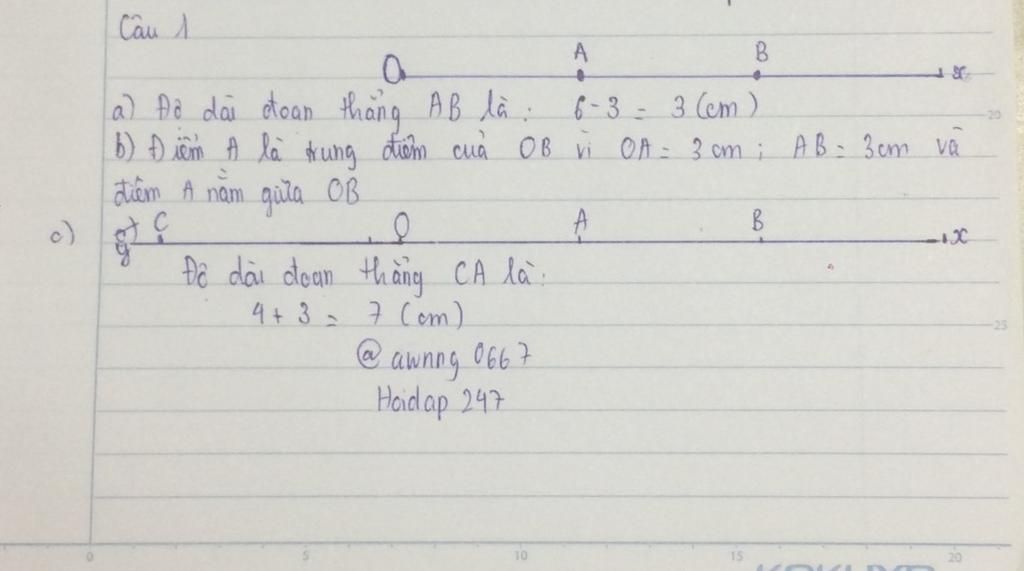 Câu 1
O A B x
a) Độ dài đoạn thẳng AB là: 6 - 3 = 3 (cm)
b) Điểm A là trung điểm của OB vì OA = 3 cm; AB = 3cm và
điểm A nằm giữa OB
c) y C O A B x
Độ dài đoạn thẳng CA là:
4 + 3 = 7 (cm)
@ awnng 0667
Hoidap 247
20
25
0 5 10 15 20